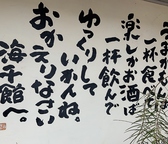 うまかもん
一杯食べて
楽しかお酒ば
一杯飲んで
ゆっくりして
いかんね。
おかえりなさい
海千館へ。